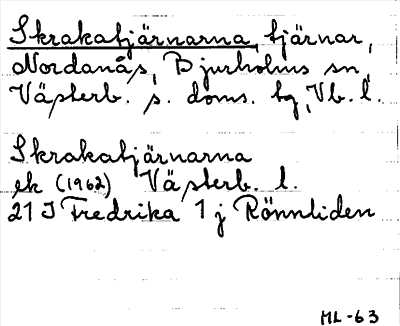 Skrakatjärnarna, tjärnar,
Nordanås, Bjurholms sn,
Västerb. s. doms. tg, Vb. l.
Skrakatjärnarna
ek (1962) Västerb. l.
21 J Fredrika 1 j Rönnliden
ML-63